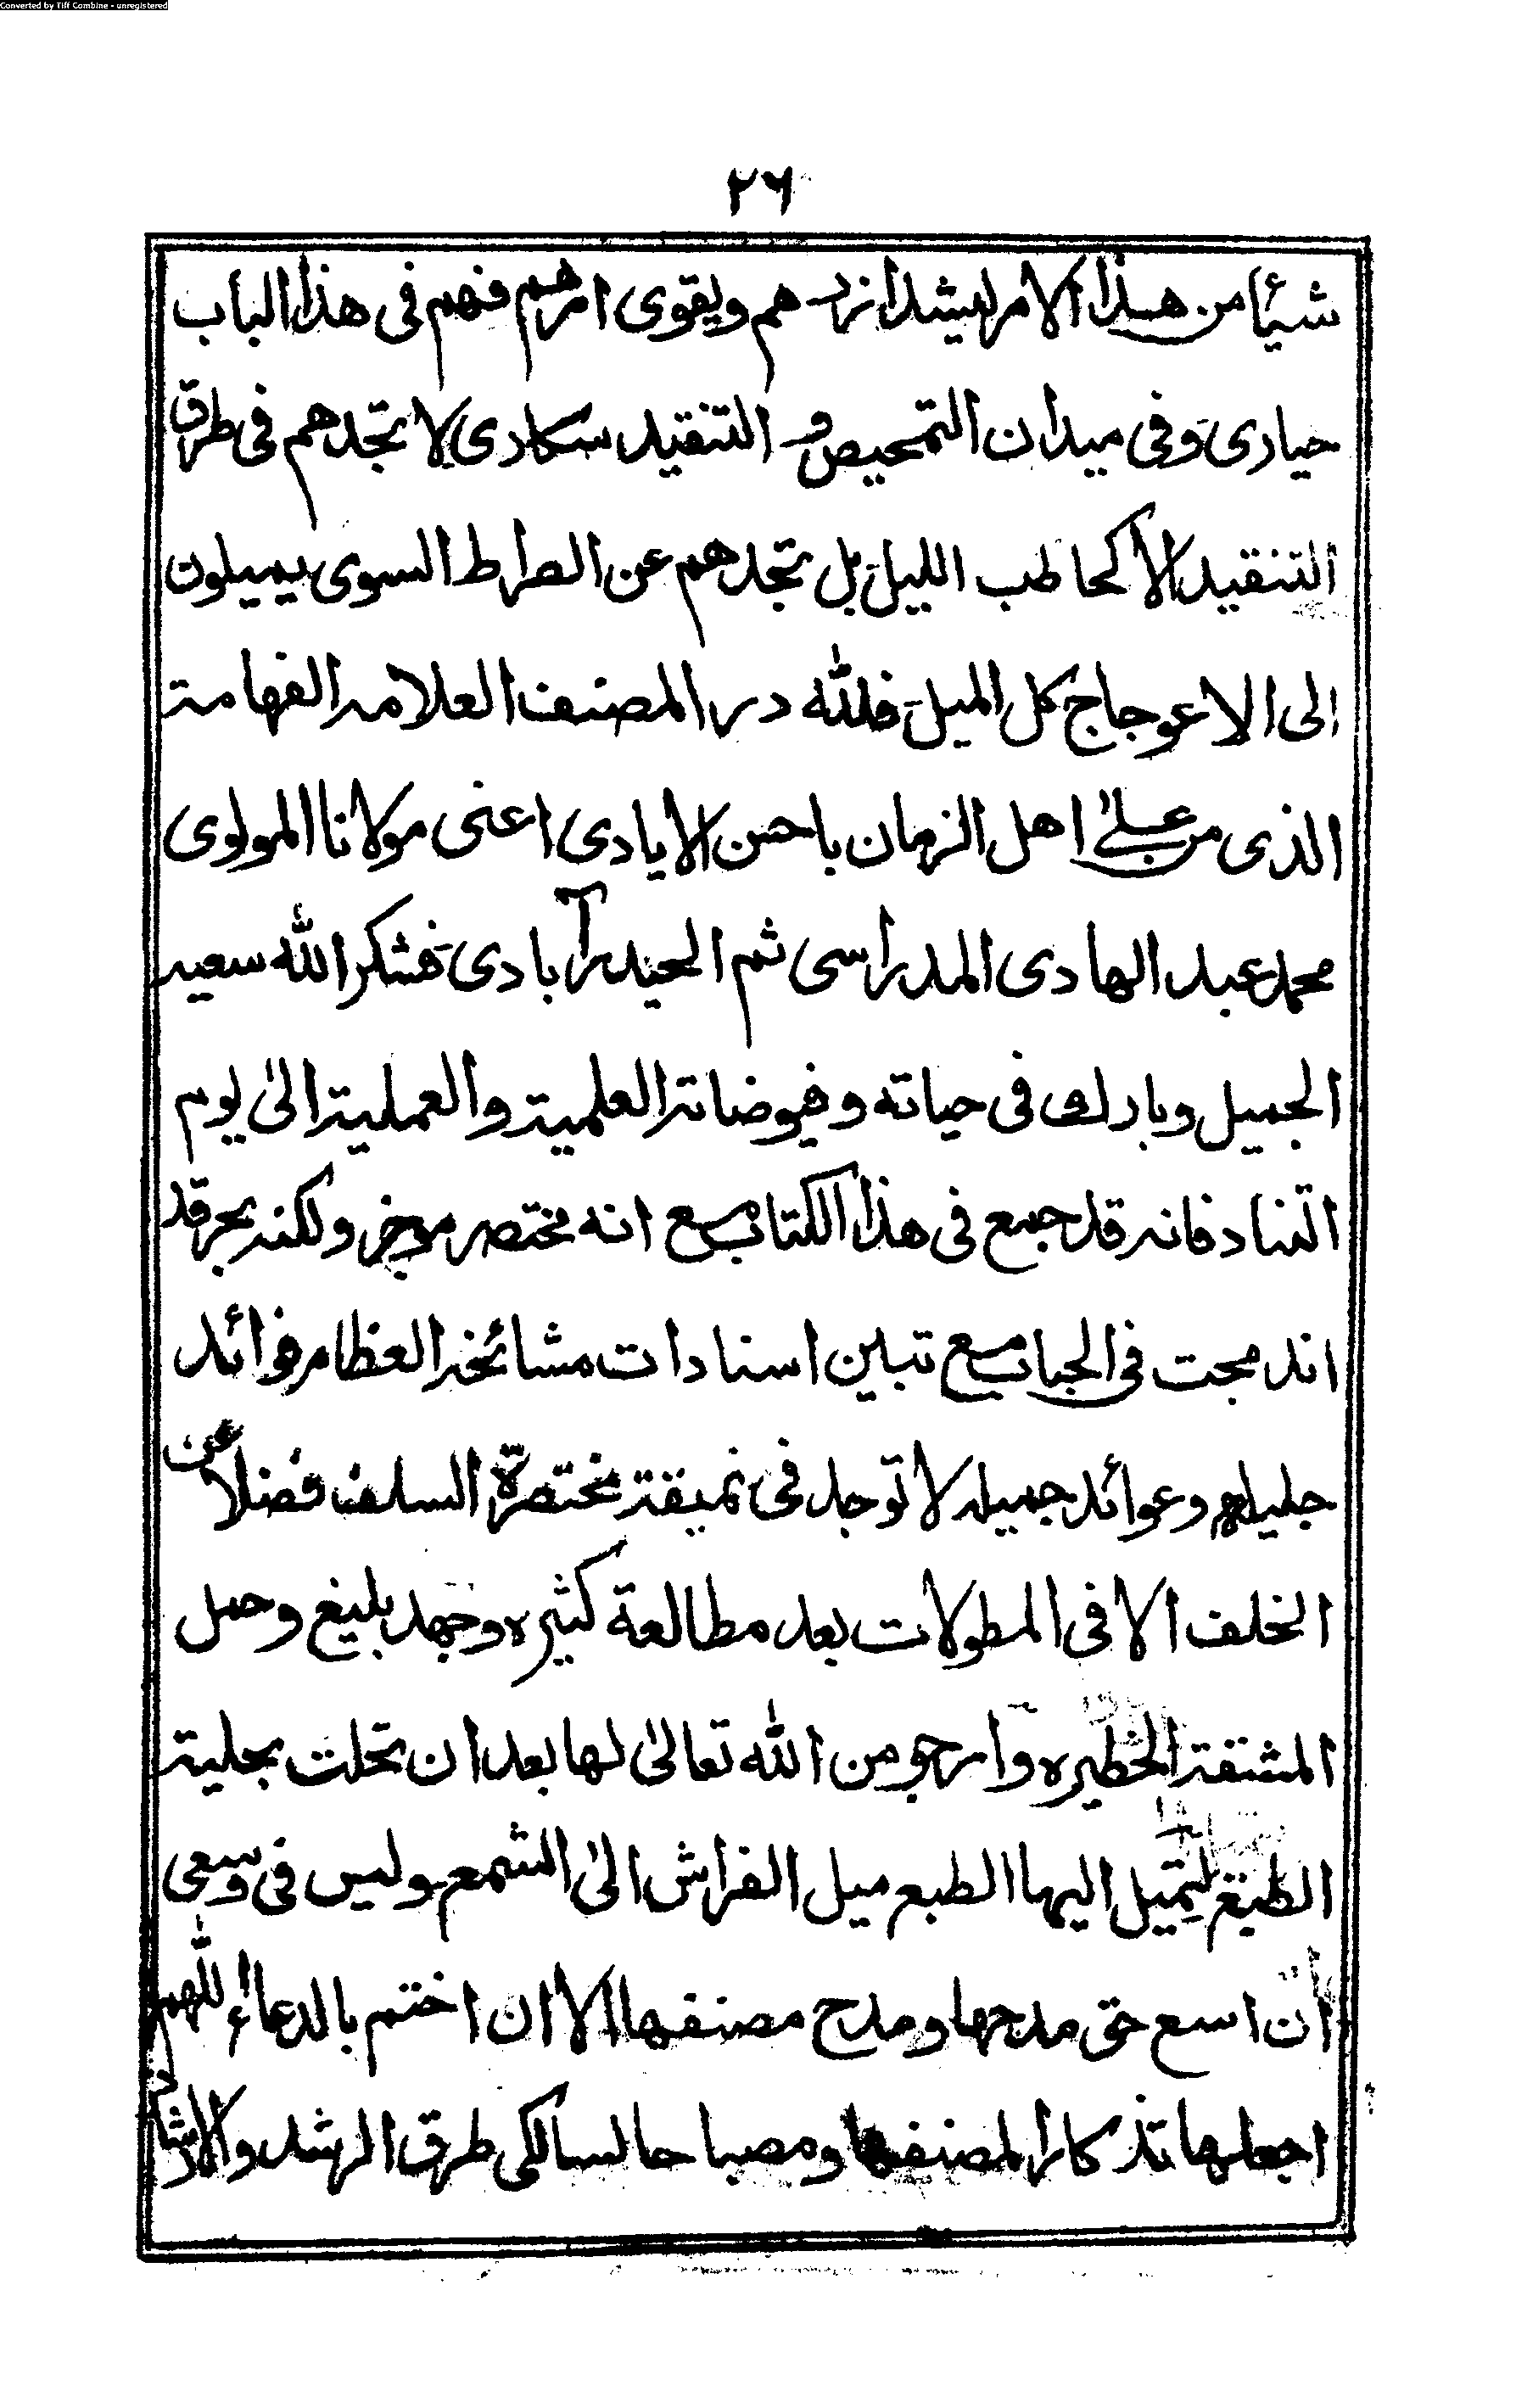 Converted by Tiff Combine - unregistered
٢٦
شيئا من هذا الامر ليشد ازرهم ويقوى امرهم فهم فى هذا الباب
حيارى وفى ميدان التمحيص و التنقيد سكارى لا تجدهم فى طرق
التنقيد الا كحاطب الليل بل تجدهم عن الصراط السوى يميلون
الى الاعوجاج كل الميل فلله در المصنف العلامه الفهامة
الذى من على اهل الزمان باحسن الايادى اعنى مولانا المولوى
محمد عبد الهادى المدراسى ثم الحيدرآبادى فشكر الله سعيه
الجميل وبارك فى حياته وفيوضاته العلمية والعملية الى يوم
التناد فانه قد جمع فى هذا الكتاب مع انه مختصر موجز ولكنه بحر قد
اندمجت فى الجباب مع تبيين اسنادات مشائخه العظام فوائد
جليله وعوائد جميله لا توجد فى نميقة مختصرة السلف فضلا عن
الخلف الا فى المطولات بعد مطالعة كثيره وجهد بليغ وحمل
المشقة الخطيره وارجو من الله تعالى لها بعد ان تحلت بحلية
الطبع ليميل اليها الطبع ميل الفراش الى الشمع وليس فى وسعى
ان اسع حق مدحها ومدح مصنفها الا ان اختم بالدعاء اللهم
اجعلها تذكارا لمصنفها ومصباحا لسالكى طرق الرشد والارشاد